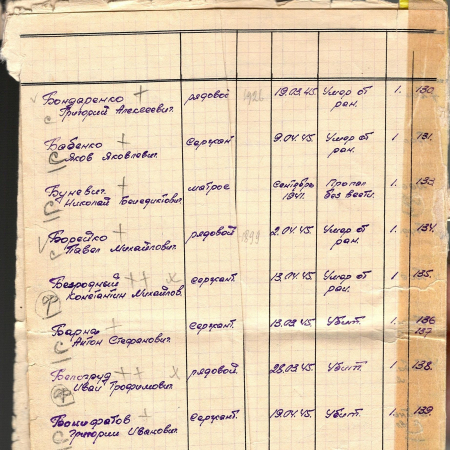 Бондаренко рядовой 1926 19.03.45 Умер от 1. 130
Григорий Алексеевич ран.
Бабенко сержант 9.04.45. Умер от 1. 131.
Яков Яковлевич. ран.
Буневич матрос Сентябрь Пропал 1. 133
Николай Бенедиктович 1941. без вести.
Борейко рядовой 1899 2.04.45. Умер от 1. 134.
Павел Михайлович. ран.
Безродный сержант 13.04.45 Умер от 1 135.
Константин Михайлов. ран.
Барна Сержант. 13.03.45. Убит. 1. 136
Антон Стефанович. 137
Белогруд рядовой. 28.03.45 Убит. 1. 138.
Иван Трофимович.
Сержант. 19.04.45. Убит. 1. 139
Григорий Иванович.